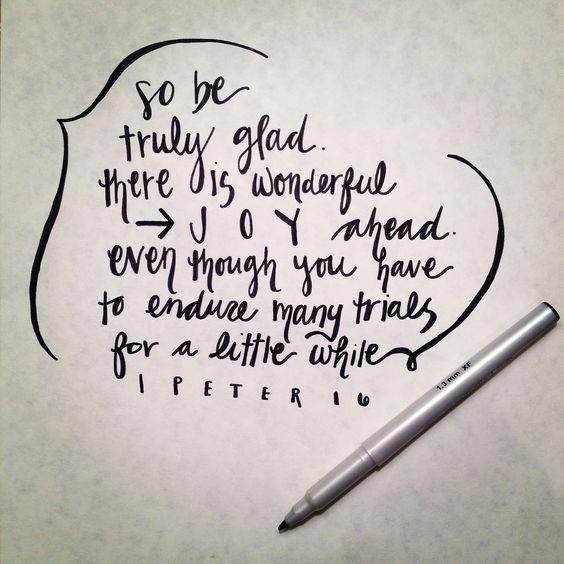 so be
truly glad.
there is wonderful
→ J O Y ahead.
even though you have
to endure many trials
for a little while
1 PETER 1 6
1.3 mm XF